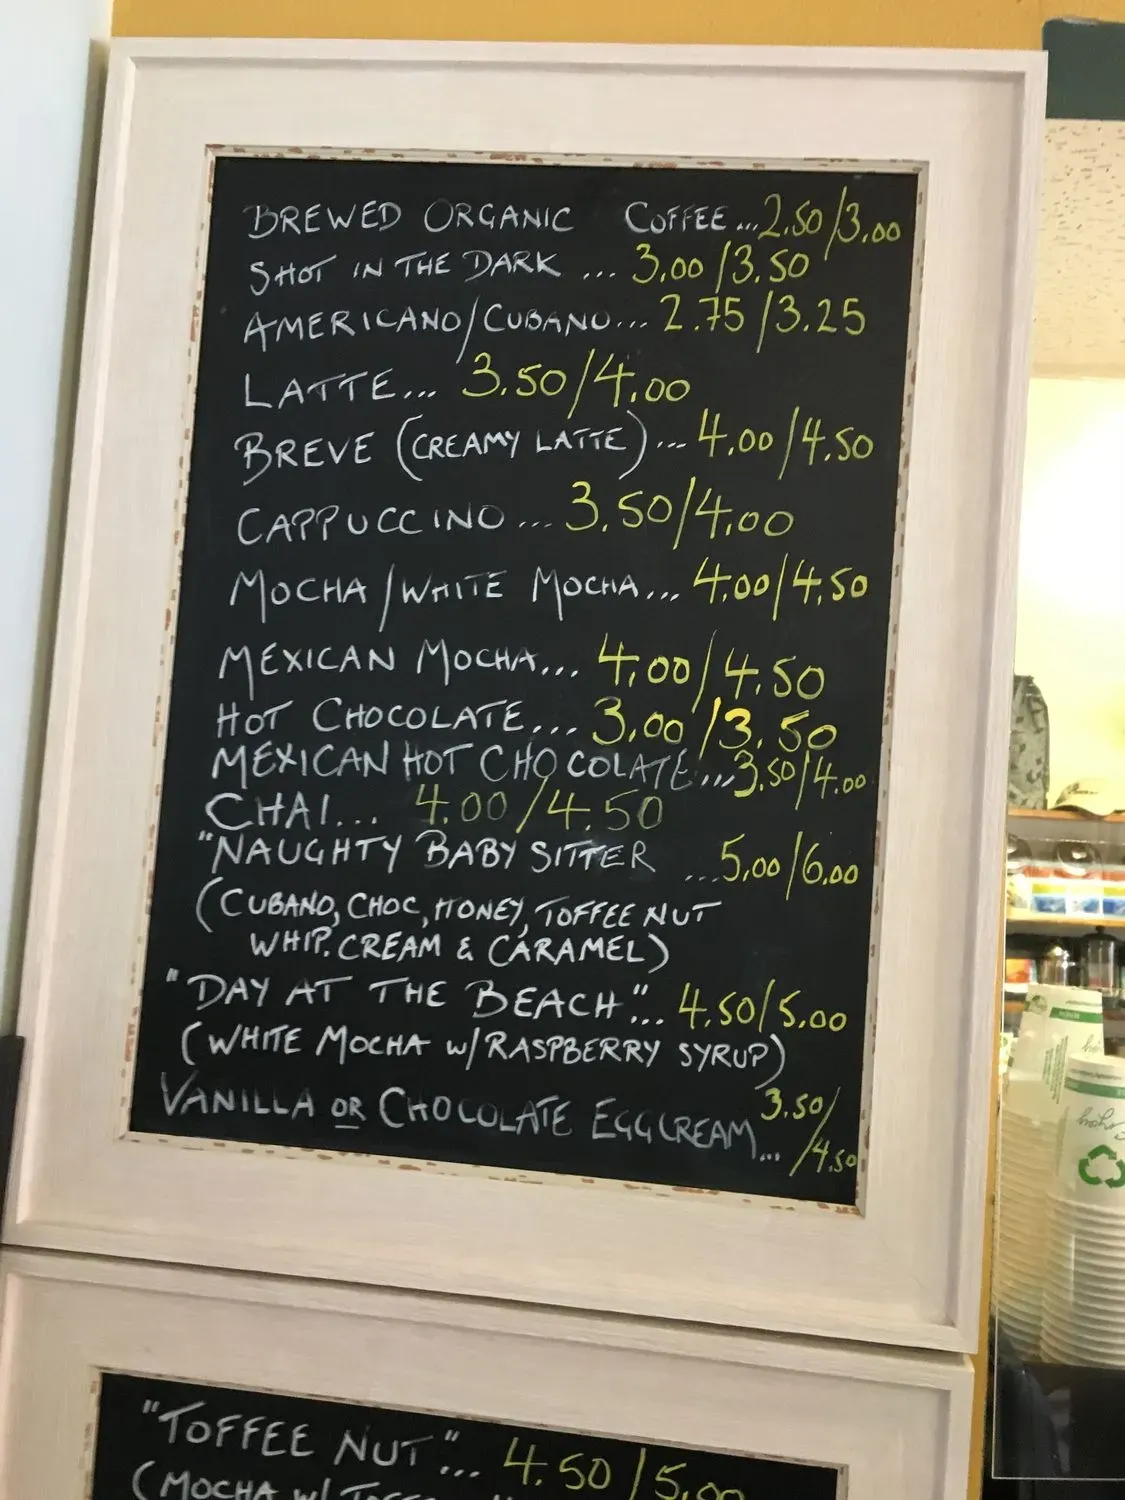 BREWED ORGANIC COFFEE...2.50/3.00
SHOT IN THE DARK ... 3.00/3.50
AMERICANO/CUBANO... 2.75/3.25
LATTE... 3.50/4.00
BREVE (CREAMY LATTE)... 4.00/4.50
CAPPUCCINO ... 3.50/4.00
MOCHA/WHITE MOCHA... 4.00/4.50
MEXICAN MOCHA... 4.00/4.50
HOT CHOCOLATE... 3.00/3.50
MEXICAN HOT CHOCOLATE...3.50/4.00
CHAI... 4.00/4.50
"NAUGHTY BABY SITTER ...5.00/6.00
(CUBANO, CHOC, HONEY, TOFFEE NUT
WHIP. CREAM & CARAMEL)
"DAY AT THE BEACH"... 4.50/5.00
(WHITE MOCHA W/RASPBERRY SYRUP)
VANILLA OR CHOCOLATE EGGCREAM... 3.50/
/4.50
"TOFFEE NUT"... 4.50/5.00
(MOCHA W/